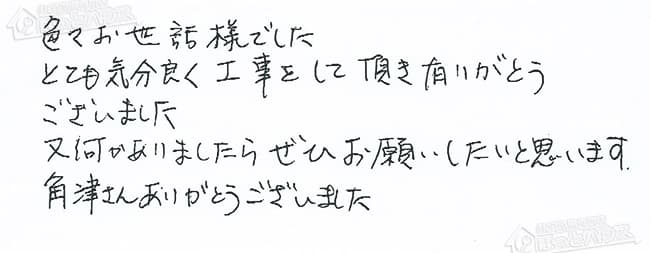 色々お世話様でした
とても気分良く工事をして頂き有りがとう
ございました
又何かありましたらぜひお願いしたいと思います.
角津さんありがとうございました